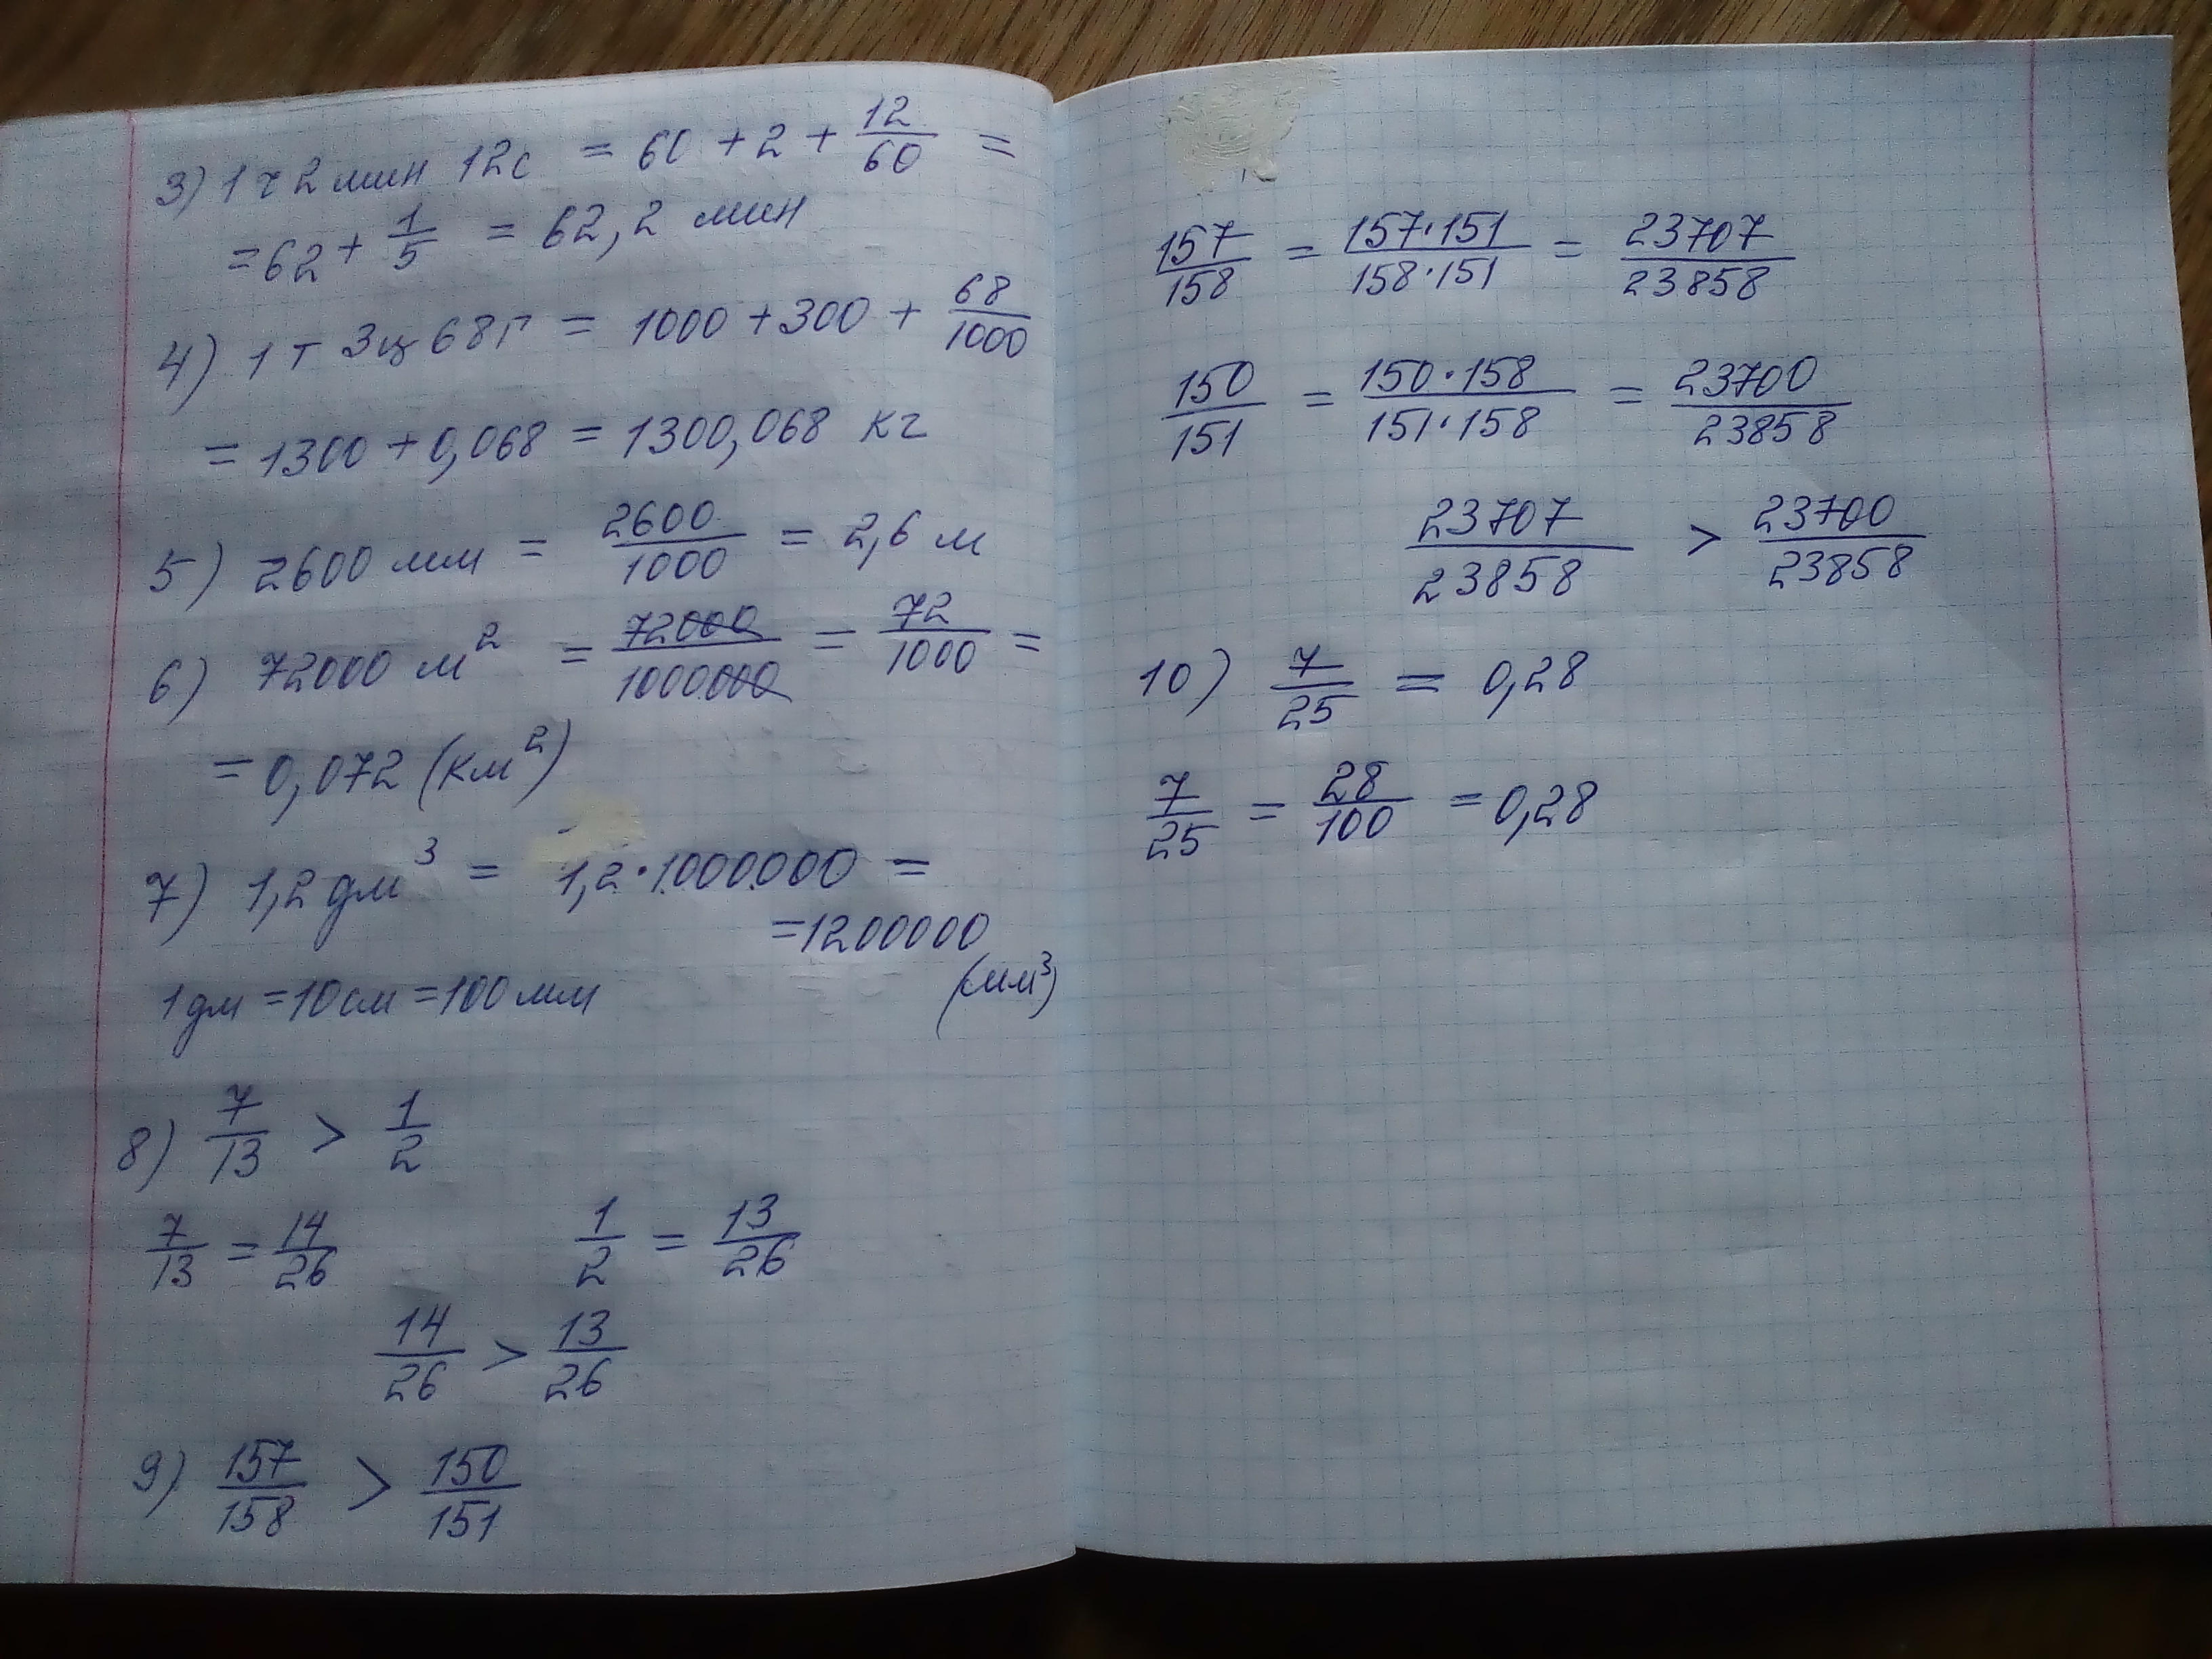 3) 1 ч 2 мин 12 с = 60 + 2 + 12/60 =
= 62 + 1/5 = 62,2 мин
4) 1 т 3 ц 68 г = 1000 + 300 + 68/1000
= 1300 + 0,068 = 1300,068 кг
5) 2600 мм = 2600/1000 = 2,6 м
6) 72000 м² = 72000/1000000 = 72/1000 =
= 0,072 (км²)
7) 1,2 дм³ = 1,2·1000000 =
= 1200000
(мм³)
1 дм = 10 см = 100 мм
8) 7/13 > 1/2
7/13 = 14/26 1/2 = 13/26
14/26 > 13/26
9) 157/158 > 150/151
157/158 = 157·151/158·151 = 23707/23858
150/151 = 150·158/151·158 = 23700/23858
23707/23858 > 23700/23858
10) 7/25 = 0,28
7/25 = 28/100 = 0,28